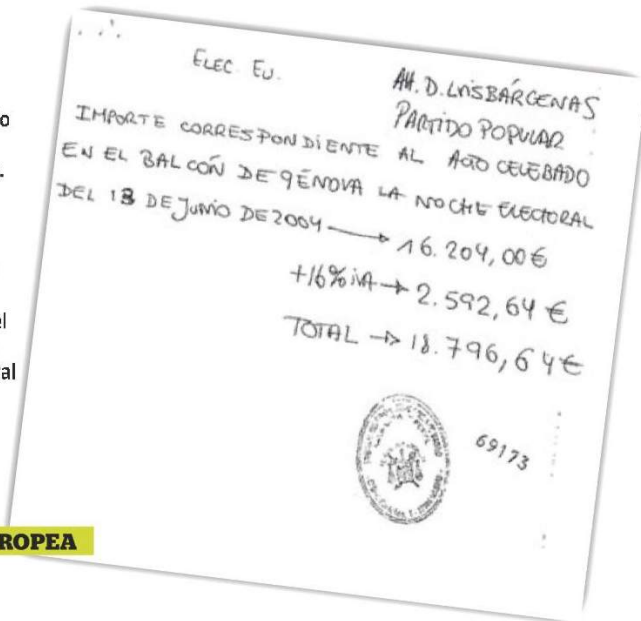 o
el
al
ROPEA
ELEC. EU.
AH. D. LUISBÁRCENAS
PARTIDO POPULAR
IMPORTE CORRESPONDIENTE AL ACTO CELEBADO
EN EL BALCÓN DE GÉNOVA LA NOCHE ELECTORAL
DEL 13 DE JUNIO DE 2004 → 16.204,00€
+16% iVA → 2.592,64 €
TOTAL → 18.796,64€
69173